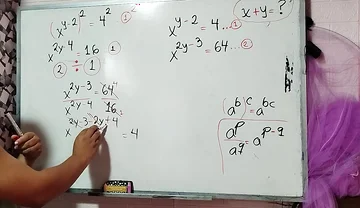 (x^{y-2})^2 = 4^2 ①
x^{2y-4} = 16 ①
② ÷ ①
x^{2y-3} = 64 4
x^{2y-4} 16
x^{2y-3-2y+4} = 4
x+y=?
x^{y-2} = 4 ... ①
x^{2y-3} = 64 ... ②
(a^b)^c = a^{bc}
a^p
a^q = a^{p-q}